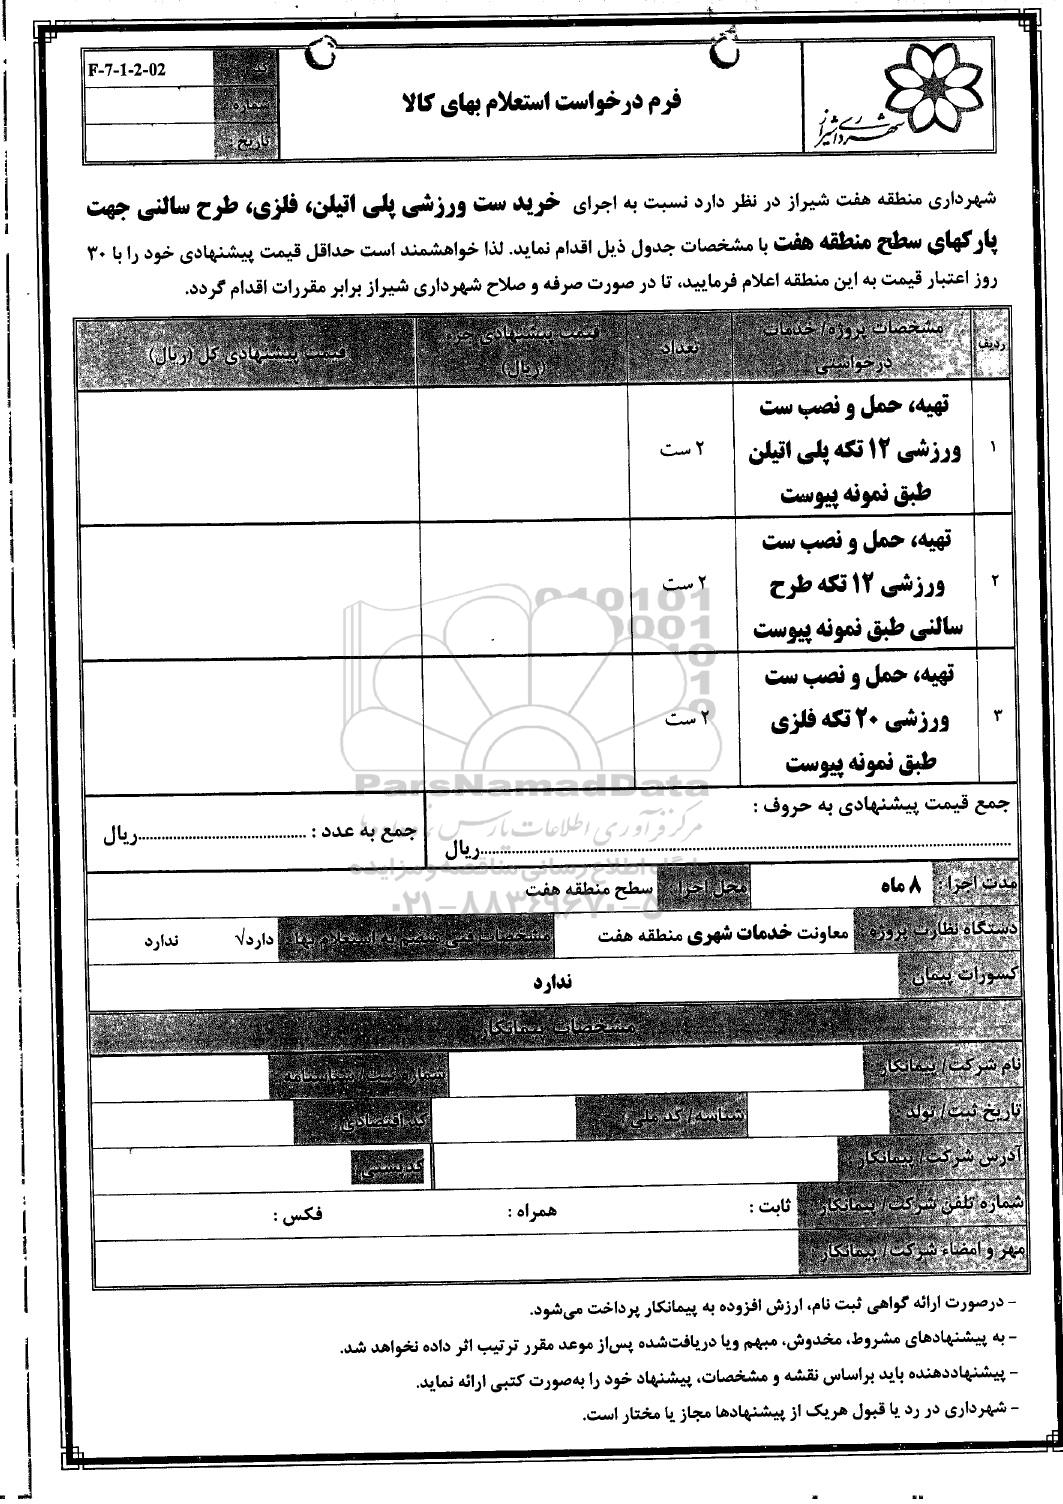 کد :
F-7-1-2-02
شماره :
تاریخ :
فرم درخواست استعلام بهای کالا
شهرداری شیراز
شهرداری منطقه هفت شیراز در نظر دارد نسبت به اجرای خرید ست ورزشی پلی اتیلن، فلزی، طرح سالنی جهت
پارکهای سطح منطقه هفت با مشخصات جدول ذیل اقدام نماید. لذا خواهشمند است حداقل قیمت پیشنهادی خود را با ۳۰
روز اعتبار قیمت به این منطقه اعلام فرمایید، تا در صورت صرفه و صلاح شهرداری شیراز برابر مقررات اقدام گردد.
ردیف
مشخصات پروژه/ خدمات
درخواستی
تعداد
قیمت پیشنهادی جزء
(ریال)
قیمت پیشنهادی کل (ریال)
۱
تهیه، حمل و نصب ست
ورزشی ۱۲ تکه پلی اتیلن
طبق نمونه پیوست
۲ ست
۲
تهیه، حمل و نصب ست
ورزشی ۱۲ تکه طرح
سالنی طبق نمونه پیوست
۲ ست
۳
تهیه، حمل و نصب ست
ورزشی ۲۰ تکه فلزی
طبق نمونه پیوست
۲ ست
ParsNamadData
مرکز فرآوری اطلاعات پارس
۰۲۱-۸۸۳۴۹۶۷۰-۵
جمع قیمت پیشنهادی به حروف :
..........ریال
جمع به عدد : ..........ریال
مدت اجرا :
۸ ماه
محل اجرا :
سطح منطقه هفت
دستگاه نظارت پروژه :
معاونت خدمات شهری منطقه هفت
مشخصات فنی منضم به استعلام بهاء
دارد√
ندارد
کسورات پیمان
ندارد
مشخصات پیمانکار
نام شرکت/ پیمانکار
شماره ثبت/ شناسنامه
تاریخ ثبت/ تولد
شناسه/ کد ملی :
کد اقتصادی
آدرس شرکت/ پیمانکار :
کدپستی
شماره تلفن شرکت/ پیمانکار
ثابت :
همراه :
فکس :
مهر و امضاء شرکت/ پیمانکار
- درصورت ارائه گواهی ثبت نام، ارزش افزوده به پیمانکار پرداخت می‌شود.
- به پیشنهادهای مشروط، مخدوش، مبهم ویا دریافت‌شده پس‌از موعد مقرر ترتیب اثر داده نخواهد شد.
- پیشنهاددهنده باید براساس نقشه و مشخصات، پیشنهاد خود را به‌صورت کتبی ارائه نماید.
- شهرداری در رد یا قبول هریک از پیشنهادها مجاز یا مختار است.